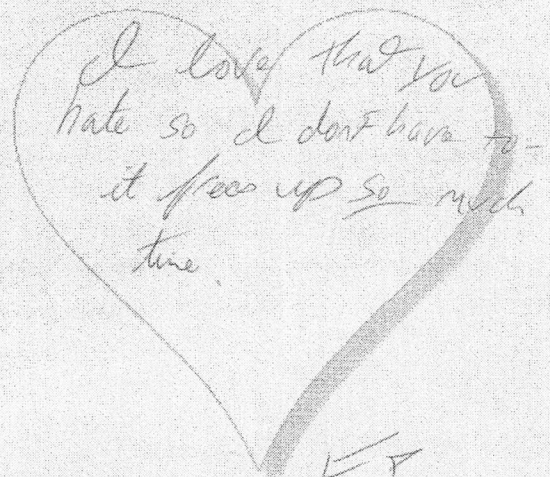 I love that you
hate so I don't have to-
it frees up so much
time.